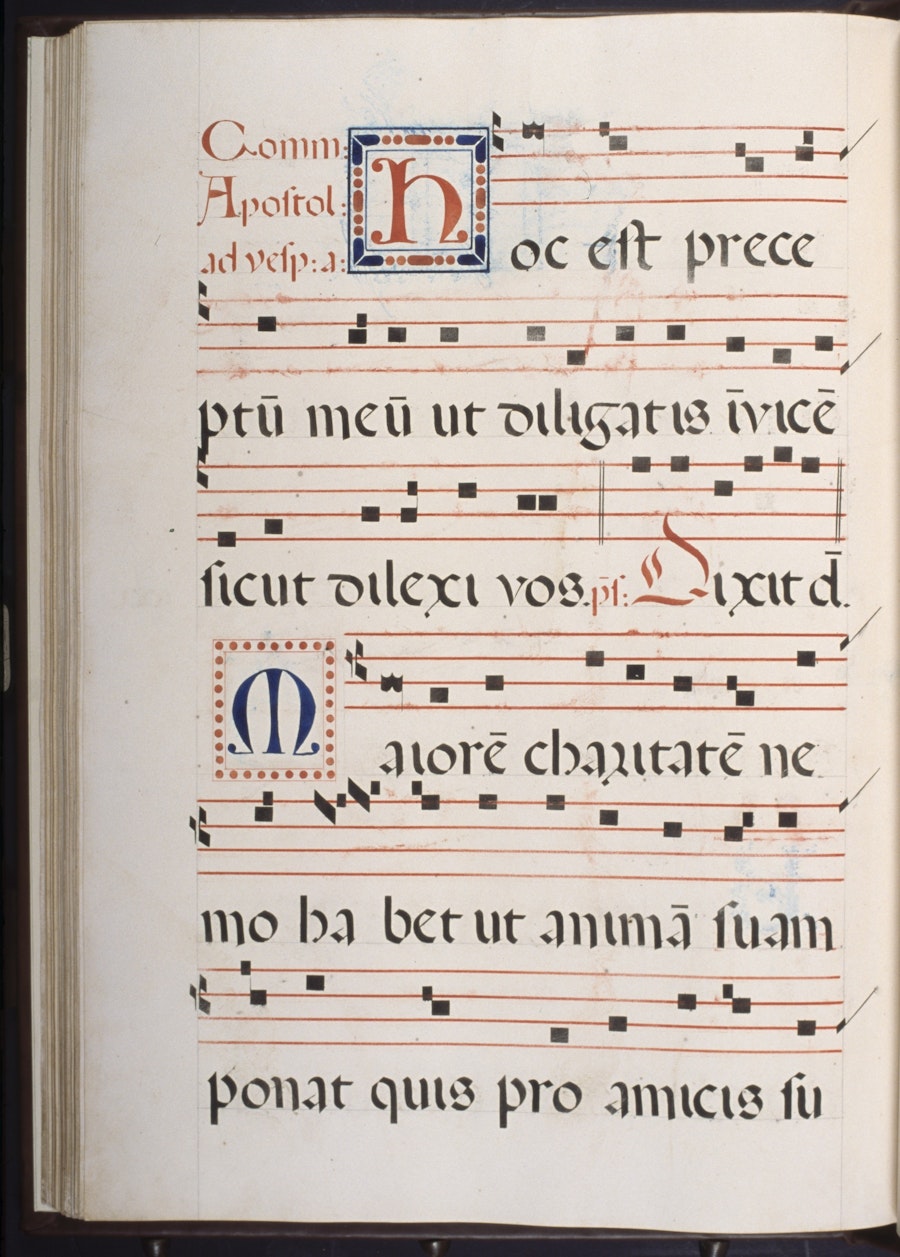 Comm:
Apoſtol:
ad veſp: a:
hoc eſt prece
ptū meū ut diligatis īvicē
ſicut dilexi vos. p̄ſ: Dixit d̄.
Maiorē charitatē ne
mo ha bet ut animā ſuam
ponat quis pro amicis ſu